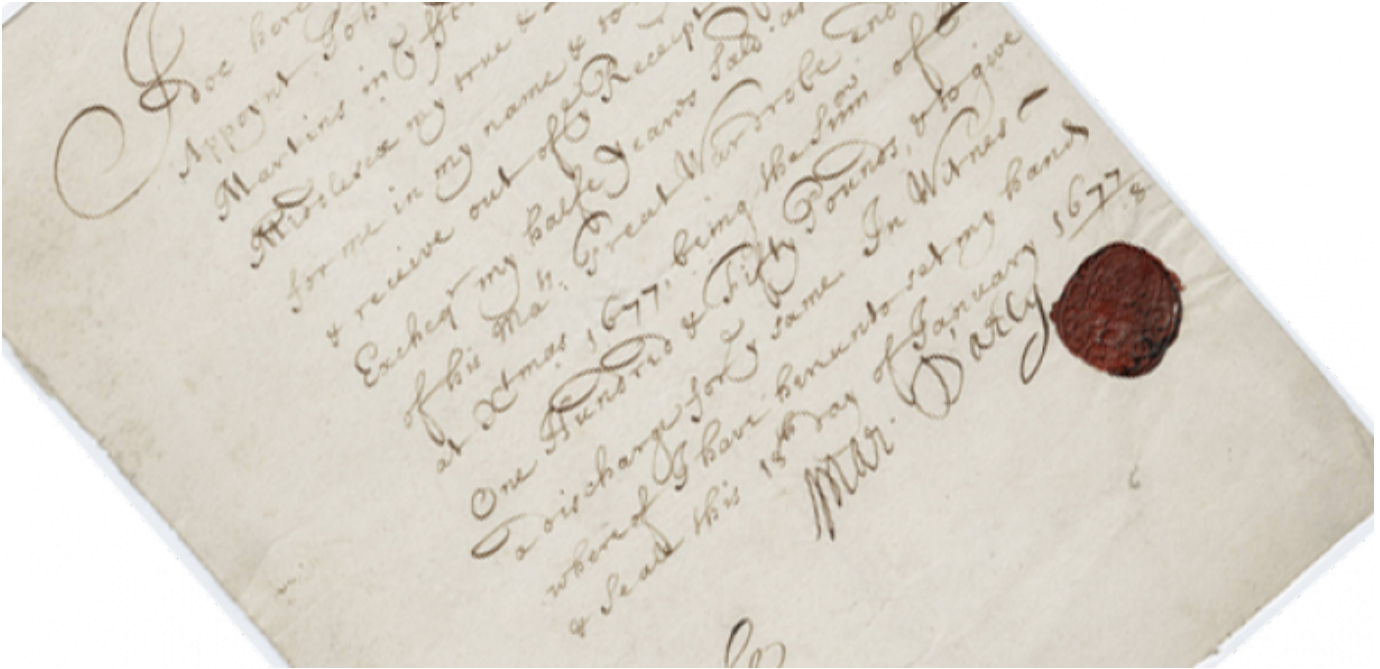 I doe here
Appoynt John
Martins in ye
Middlesex my true &
for me in my name & to
& receive out of ye Receipt
Excheqr my halfe Yeares
of his Mats. Great Wardrobe End
at Xtmas 1677, being the Sum of
One Hundrd & Fifty Pounds, & to give
a discharge for ye same. In Witnes
whereof I have hereunto set my hand
& Seale this 15th day of January 1677/8
Mar. Darcy